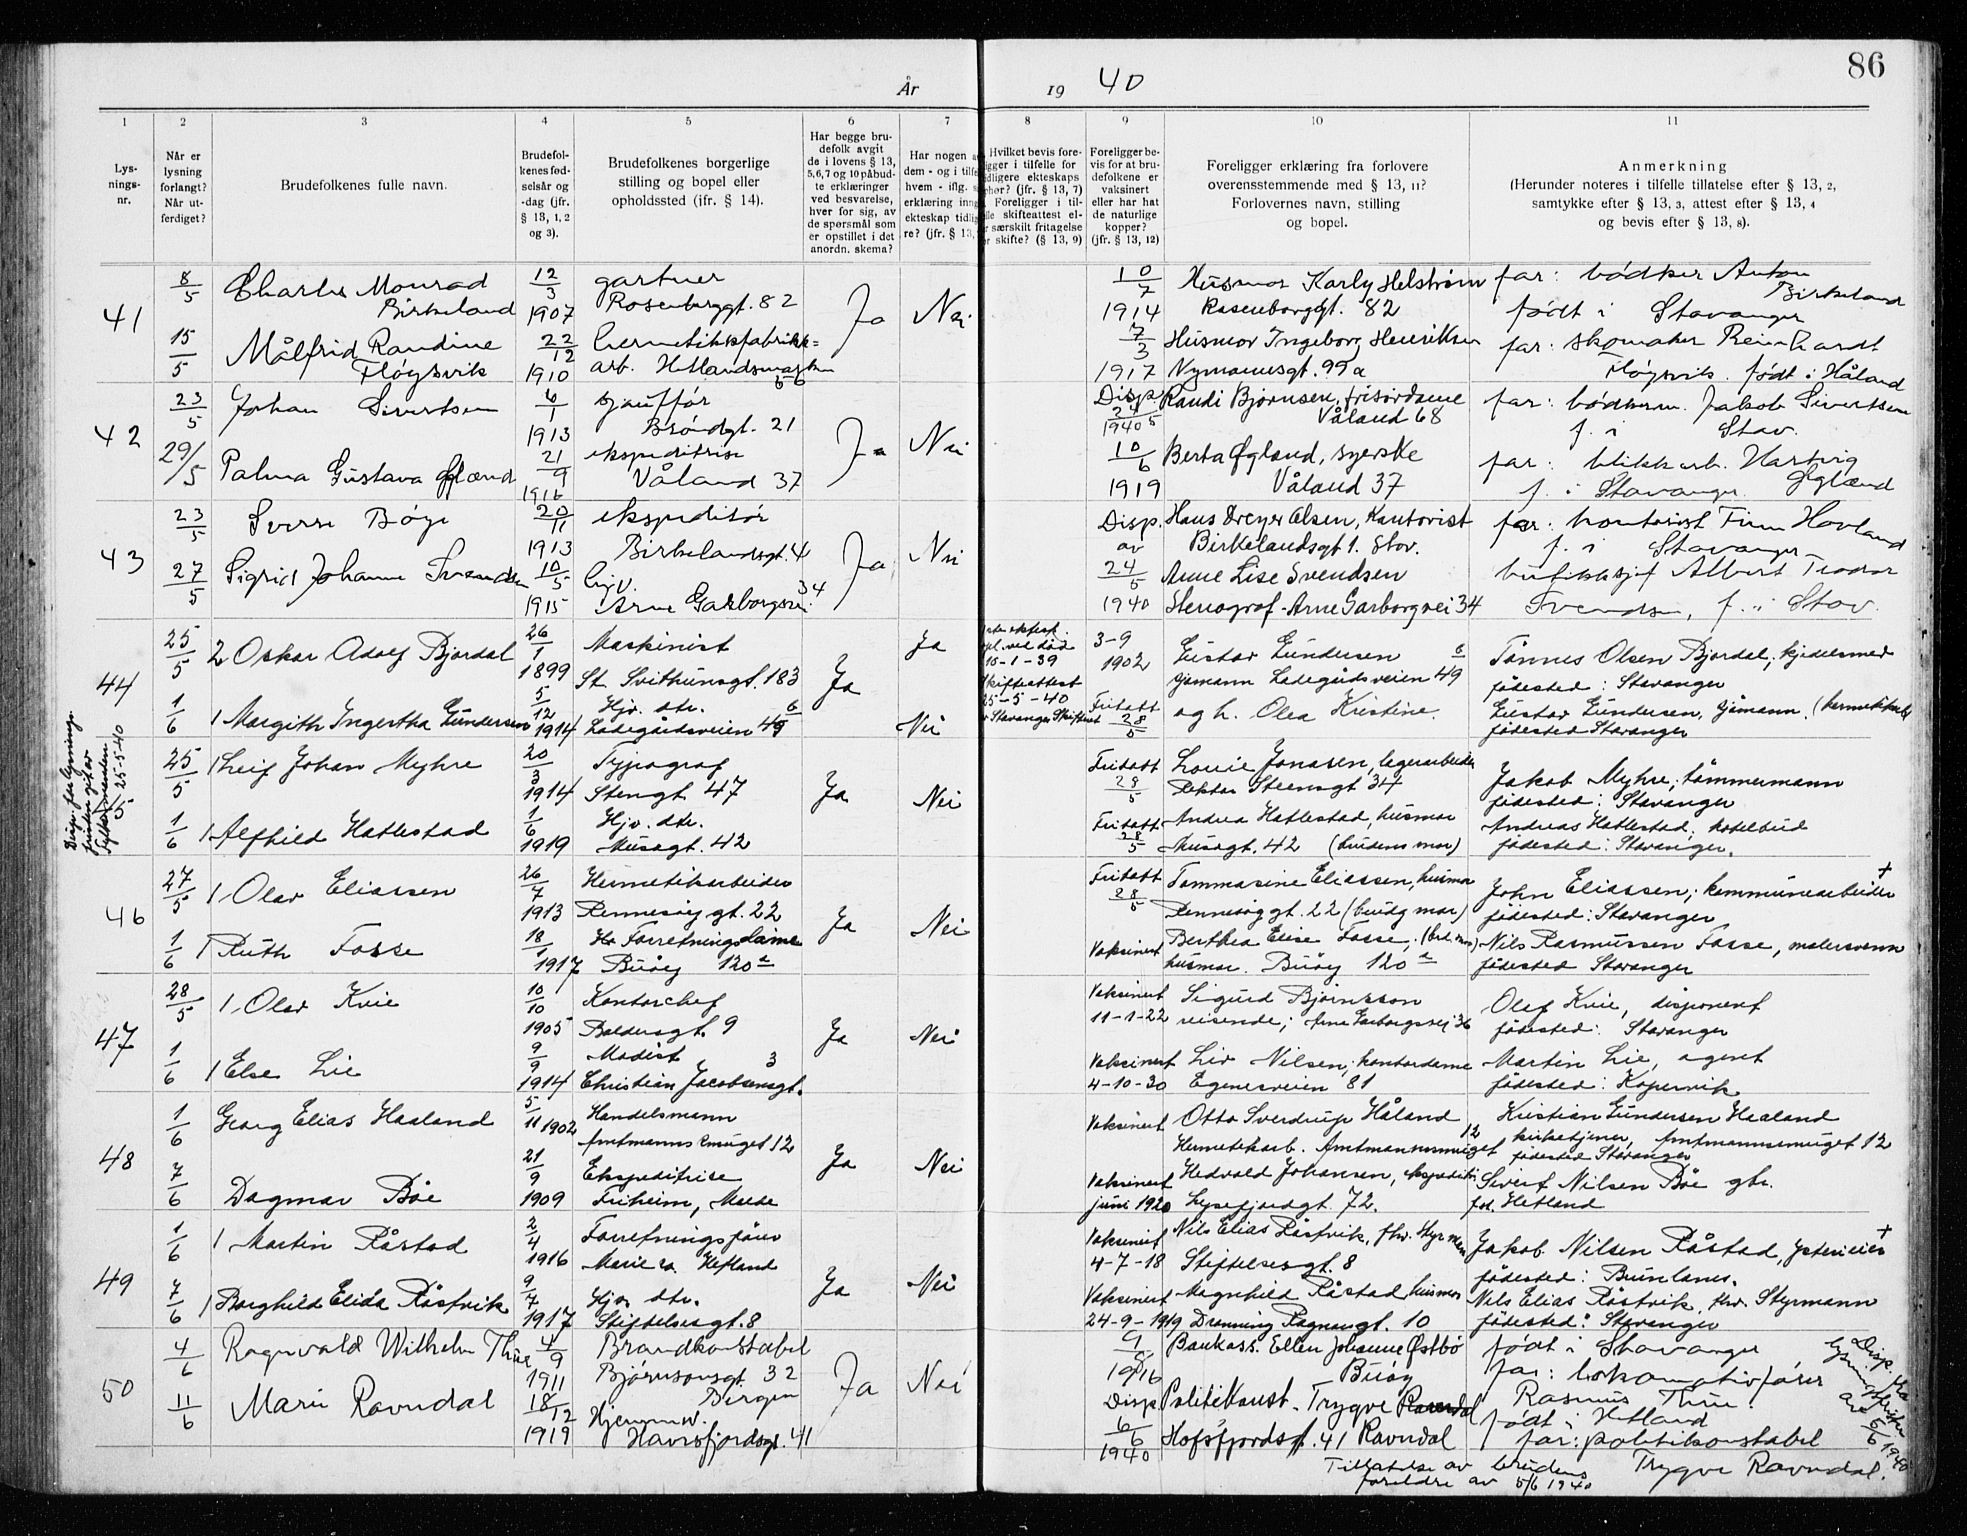 86
År
19 40
1
2
3
4
5
6
7
8
9
10
11
Lysningsnr.
Når er lysning forlangt? Når utferdiget?
Brudefolkenes fulle navn.
Brudefolkenes fødselsår og -dag (jfr. § 13, 1, 2 og 3).
Brudefolkenes borgerlige stilling og bopel eller opholdssted (jfr. § 14).
Har begge brudefolk avgit de i lovens § 13, 5,6,7 og 10 påbudte erklæringer ved besvarelse, hver for sig, av de spørsmål som er opstillet i det anordn. skema?
Foreligger bevis for at brudefolkene er vaksinert eller har hat de naturlige kopper? (jfr. § 13, 12)
Foreligger erklæring fra forlovere overensstemmende med § 13, 11? Forlovernes navn, stilling og bopel.
Anmerkning
(Herunder noteres i tilfelle tillatelse efter § 13, 2, samtykke efter § 13, 3, attest efter § 13, 4 og bevis efter § 13, 8).
41
8/5
Charles Monrad Birkeland
12/3 1907
gartner
Rosenberggt. 82
Ja
Nei
10/7 1914
Husmor Karly Helstrøm
Rosenborggt. 82
far: bødker Anton Birkeland
født i Stavanger
15/5
Målfrid Randine Fløysvik
22/12 1910
hermetikkfabrikk=
arb. Hetlandsmarken 66
7/3 1917
Husmor Ingeborg Henriksen
Nymannsgt. 99a
far: skomaker Reinhardt
Fløysvik. født i Håland
42
23/5
Johan Sivertsen
6/1 1913
sjauffør
Brøndgt. 21
Ja
Nei
Disp. 24/5 1940
Randi Bjørnsen, frisørdame
Våland 68
far: bødkerm. Jakob Sivertsen
f. i Stav.
29/5
Palma Gustava Øglænd
21/9 1916
ekspeditrise
Våland 37
10/6 1919
Berta Øgland, syerske
Våland 37
far: blikkarb. Hartvig Øglænd
f. i Stavanger
43
23/5
Sverre Bøye
20/11 1913
ekspeditør
Birkelandsgt. 4
Ja
Nei
Disp. av
Hans Dreyer Olsen, Kontorist
Birkelandsgt 1. Stav.
far: kontorist Finn Hovland
f. i Stavanger
27/5
Sigrid Johanne Svendsen
10/5 1915
hjv.
Arne Garborgsvei. 34
24/5 1940
Anne Lise Svendsen
Stenograf - Arne Garborgvei 34
butikksjef Albert Teodor
Svendsen, f. i Stav.
44
25/5
2 Oskar Adolf Bjordal
26/1 1899
Maskinist
St. Svithunsgt. 183
Ja
Ja
ved død
15-1-39
Skifteattest
25-5-40
Stavanger Skifterett
3-9 1902
Gustav Gundersen
sjømann Ladegårdsveien 49 6
Tønnes Olsen Bjordal; kjedelsmed
fødested: Stavanger
1/6
1 Margith Ingertha Gundersen
5/12 1914
Hjv. dtr.
Ladegårdsveien 49 6
Nei
Fritatt 28/5
og h. Olea Kristine.
Gustav Gundersen, sjømann. (hermetikarb)
fødested Stavanger
Disp. fra lysnings-
fristen git av
Fylkesmannen
25-5-40
25/5
1 Leif Johan Myhre
20/3 1914
Typograf
Stengt 47
Ja
Nei
Fritatt 28/5
Louie Jonasen, lagerarbeider
Rektor Steensgt 34
Jakob Myhre; tømmermann
fødested: Stavanger
1/6
1 Alfhild Hatlestad
1/6 1919
Hjv. dtr.
Musegt. 42
Fritatt 28/5
Andrea Hatlestad, husmor
Musegt. 42 (brudens mor)
Andreas Hatlestad; hotelbud
fødested: Stavanger.
46
27/5
1 Olav Eliassen
26/7 1913
Hermetikarbeider
Rennesøy gt. 22
Ja
Nei
Fritatt 28/5
Tommasine Eliassen, husmor
Rennesøygt. 22 (brudg mor)
John Eliassen; kommunearbeider +
fødested: Stavanger
1/6
1 Ruth Fosse
18/1 1917
Forretningsdame
Buøy 120a
Vaksinert
Berthea Elise Fosse, (brd. mor)
husmor. Buøy 120a
Nils Rasmussen Fosse, malersvenn
fødested Stavanger
47
28/5
1. Olav Kvie
10/10 1905
Kontorchef
Baldersgt. 9
Ja
Nei
Vaksinert
11-1-22
Sigurd Bjørnsson
reisende; Arne Garborgsvei 36
Olaf Kvie, disponent
fødested: Stavanger
1/6
1 Else Lie
9/9 1914
Modist
Christian Jacobsensgt. 3
Vaksinert
4-10-30
Liv Nilsen; kontordame
Egenesveien 81
Martin Lie, agent
fødested: Kopervik
48
1/6
Georg Elias Haaland
5/11 1902
Handelsmann
Amtmanns smuget 12
Ja
Nei
Vaksinert
Otto Sverdrup Håland
Hermetikarb. Amtmannsmuget 12
Kristian Gundersen Haaland
kirketjener, Amtmannsmuget 12
fødested Stavanger
7/6
Dagmar Bøe
21/9 1909
Ekspeditrise
Friheim, Madla
Vaksinert
juni 1920
Hedvald Johansen, ekspeditr.
Lysefjordgt. 72.
Sivert Nilsen Bøe gbr.
fst. Hetland
49
1/6
1 Martin Råstad
2/4 1916
Forretningsfører
Marie v. Hetland
Ja
Nei
Vaksinert
4-7-18
Nils Elias Råstvik, fhv. Styrmann
Stiftelsesgt. 8
Jakob Nilsen Råstad, ysterieier +
fødested: Brunlanes.
7/6
1 Borghild Elida Råstvik
9/7 1917
Hjv. dtr.
Stiftelsesgt. 8
Vaksinert
24-9-1919
Magnhild Råstad husmor
Dronning Ragnasgt. 10
Nils Elias Råstvik, fhv. Styrmann
fødested: Stavanger
50
4/6
Ragnvald Wilhelm Thue
4/9 1911
Brandkonstabel
Bjørnsonsgt 32
Bergen
Ja
Nei
1916
Bankass. Ellen Johanne Østbø
Buøy
født i Stavanger
far: lokomotivfører
Rasmus Thue.
11/6
Marie Ravndal
18/12 1919
Hjemmev.
Havrsfjordsgt. 41
Disp. 6/6 1940
Politikonst. Trygve
Hafsfjordsgt. 41 Ravndal
født i Hetland
far: politikonstabel
Trygve Ravndal.
Tillatelse av brudens
foreldre av 5/6 1940
Disp. fra
lysningsfristen
av 5/6 1940